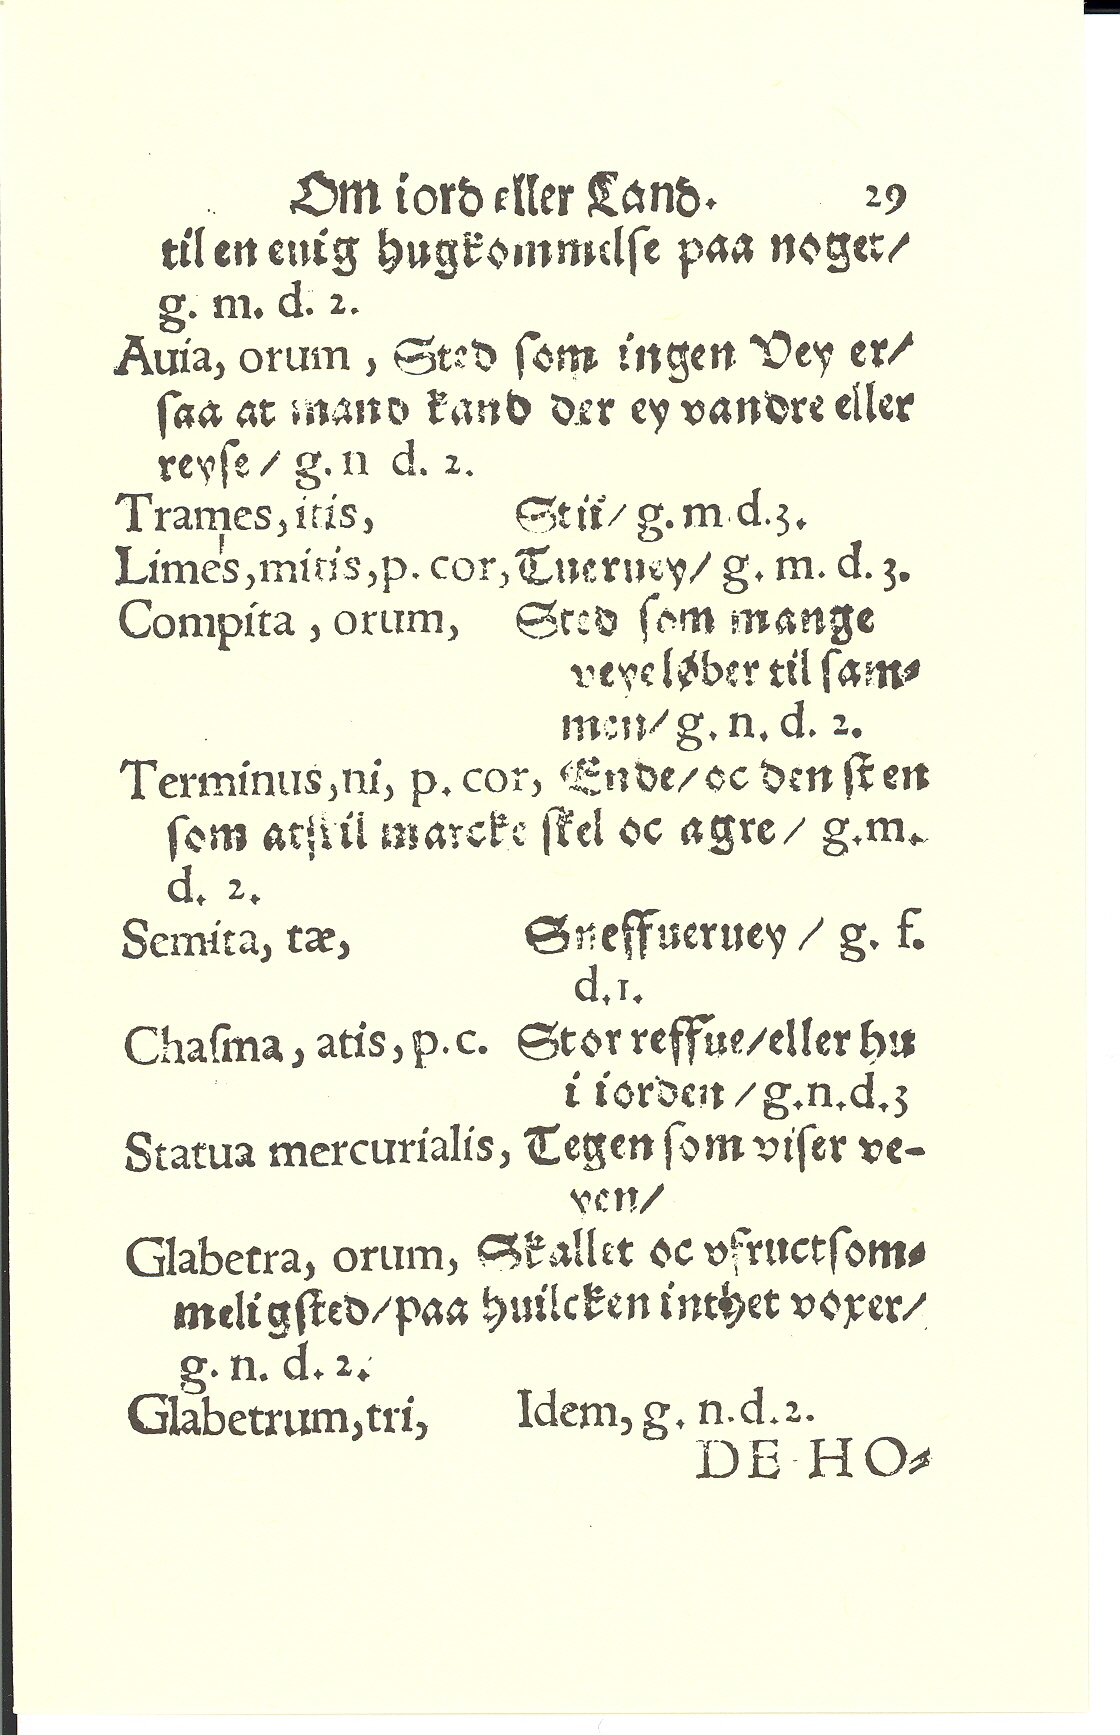 Om iord eller Land. 29
til en euig hugkommelse paa noget/
g. m. d. 2.
Auia, orum, Sted som ingen Vey er/
saa at mand kand der ey vandre eller
reyse/ g. n d. 2.
Trames, itis, Stii/ g. m d. 3.
Limes, mitis, p. cor, Tueruey/ g. m. d. 3.
Compita, orum, Sted som mange
veye løber til sam⸗
men/ g. n. d. 2.
Terminus, ni, p. cor, Ende/ oc den sten
som atskil marcke skel oc agre/ g. m.
d. 2.
Semita, tæ, Sneffueruey / g. f.
d. 1.
Chasma, atis, p. c. Stor reffue/ eller hu
i iorden / g. n. d. 3
Statua mercurialis, Tegen som viser ve-
yen/
Glabetra, orum, Skallet oc vfructsom⸗
melig sted/ paa huilcken inthet voxer/
g. n. d. 2.
Glabetrum, tri, Idem, g. n. d. 2.
DE HO⸗